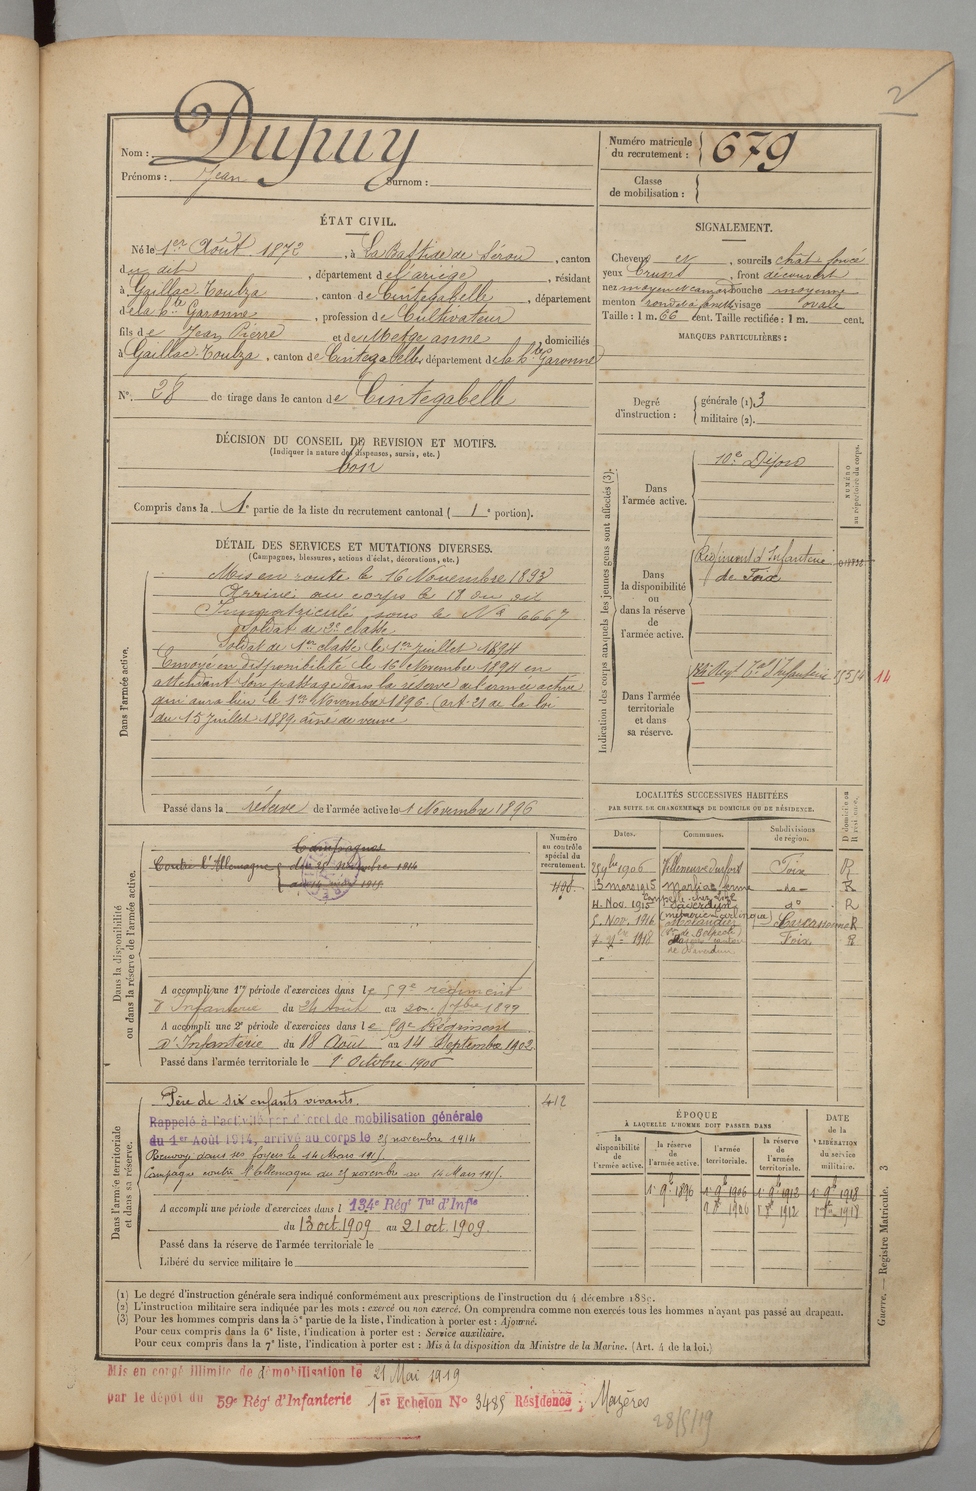 2
Nom : Dupuy
Prénoms : Jean Surnom :
Numéro matricule du recrutement : 679
Classe de mobilisation :
ÉTAT CIVIL.
Né le 1er Août 1872, à La Bastide de Sérou, canton
du dit, département de l'ariège, résidant
à Gaillac-Toulza, canton de Cintegabelle, département
de la Hte Garonne, profession de Cultivateur
fils de Jean Pierre et de Metge anne domiciliés
à Gaillac-Toulza, canton de Cintegabelle, département de la Hte Garonne
N°. 28 de tirage dans le canton de Cintegabelle
SIGNALEMENT.
Cheveux et, sourcils chat. foncé
yeux bruns, front découvert
nez moyen et camard bouche moyenne
menton rond visage ovale
Taille : 1 m. 66 cent. Taille rectifiée : 1 m. cent.
MARQUES PARTICULIÈRES :
Degré d'instruction : générale (1). 3
militaire (2).
DÉCISION DU CONSEIL DE REVISION ET MOTIFS.
(Indiquer la nature des dispenses, sursis, etc.)
bon
Compris dans la 1e partie de la liste du recrutement cantonal ( 1e portion).
DÉTAIL DES SERVICES ET MUTATIONS DIVERSES.
(Campagnes, blessures, actions d'éclat, décorations, etc.)
Dans l'armée active.
Mis en route le 16 Novembre 1893
Arrivé au corps le 18 du dit
Immatriculé sous le No 6667
Soldat de 2e classe
Soldat de 1re classe le 1er juillet 1894
Envoyé en disponibilité le 16 Novembre 1894 en
attendant son passage dans la réserve de l'armée active
qui aura lieu le 1er Novembre 1896. (art. 21 de la loi
du 15 juillet 1889. aîné de veuve
Passé dans la réserve de l'armée active le 1 Novembre 1896
Indication des corps auxquels les jeunes gens sont affectés (3).
NUMÉRO au répertoire du corps.
Dans l'armée active.
10e
Dans la disponibilité ou dans la réserve de l'armée active.
Régiment d'Infanterie
de Foix
Dans l'armée territoriale et dans sa réserve.
134e Regt Tal d'Infanterie
14
LOCALITÉS SUCCESSIVES HABITÉES
PAR SUITE DE CHANGEMENTS DE DOMICILE OU DE RÉSIDENCE.
D domicile ou R résidence.
Dates. Communes. Subdivisions de région.
1906 Villeneuve Foix R
13 mars 1915 -do- R
4. Nov. 1915 Saverdun do R
5. Nov. 1916 Carcassonne R
1918 Foix R
Dans la disponibilité ou dans la réserve de l'armée active.
Numéro au contrôle spécial du recrutement.
Campagnes
Contre l'Allemagne du 25 novembre 1914
au 14 mars 1915
A accompli une 1re période d'exercices dans le 59e régiment
d'Infanterie du 24 Août au 20 7bre 1899
A accompli une 2e période d'exercices dans le 59e Régiment
d'Infanterie du 18 Août au 14 Septembre 1902
Passé dans l'armée territoriale le 1 Octobre 1906
Dans l'armée territoriale et dans sa réserve.
Père de six enfants vivants.
412
Rappelé à l'activité par décret de mobilisation générale
du 1er Août 1914, arrivé au corps le 25 novembre 1914
Renvoyé dans ses foyers le 14 Mars 1915.
Campagne contre l'Allemagne du 25 novembre au 14 Mars 1915.
A accompli une période d'exercices dans l 134e Régt Tal d'Infie
du 13 oct. 1909 au 21 oct. 1909.
Passé dans la réserve de l'armée territoriale le
Libéré du service militaire le
ÉPOQUE
À LAQUELLE L'HOMME DOIT PASSER DANS
la disponibilité de l'armée active. la réserve de l'armée active. l'armée territoriale. la réserve de l'armée territoriale.
DATE de la LIBÉRATION du service militaire.
1er 9bre 1896 1er 9bre 1906 1er 9bre 1912 1er 9bre 1918
1906 1912 1918
(1) Le degré d'instruction générale sera indiqué conformément aux prescriptions de l'instruction du 4 décembre 1889.
(2) L'instruction militaire sera indiquée par les mots : exercé ou non exercé. On comprendra comme non exercés tous les hommes n'ayant pas passé au drapeau.
(3) Pour les hommes compris dans la 5e partie de la liste, l'indication à porter est : Ajourné.
Pour ceux compris dans la 6e liste, l'indication à porter est : Service auxiliaire.
Pour ceux compris dans la 7e liste, l'indication à porter est : Mis à la disposition du Ministre de la Marine. (Art. 4 de la loi.)
Guerre. — Registre Matricule. 3
Mis en congé illimité de démobilisation le 21 Mai 1919
par le dépôt du 59e Régt d'Infanterie 1er Echelon No 3485 Résidence : Mazères
28/5/19